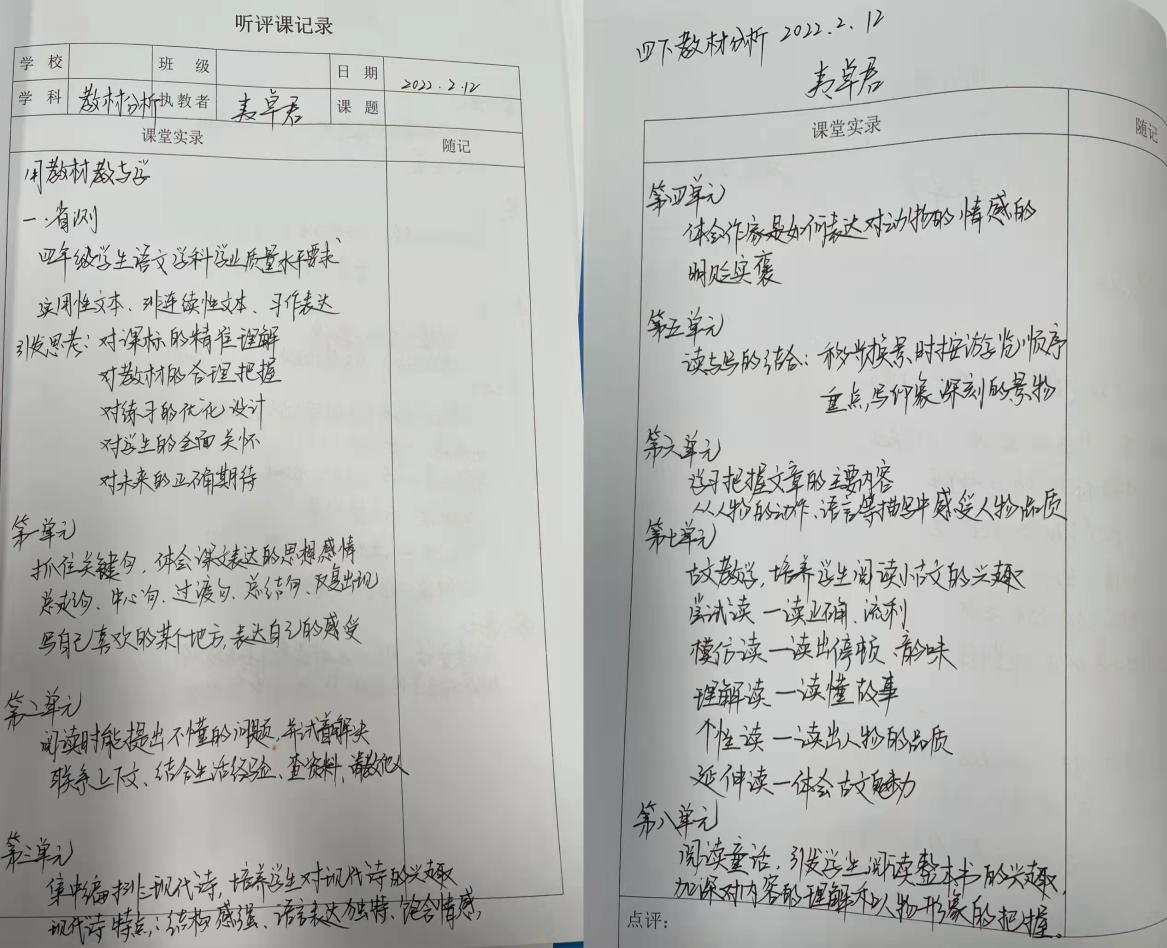 听评课记录
学 校 班 级 日 期 2022.2.12
学 科 教材分析 执教者 卓君 课 题
课堂实录 随记
用教材教与学
一.省测
四年级学生语文学科学业质量水平要求
实用性文本、非连续性文本、习作表达
引发思考：对课标的精准理解
对教材的合理把握
对练习的优化设计
对学生的全面关怀
对未来的正确期待
第一单元
抓住关键句，体会课文表达的思想感情
总起句、中心句、过渡句、总结句、反复出现
写自己喜欢的某个地方，表达自己的感受
第二单元
阅读时能提出不懂的问题，并试着解决
联系上下文、结合生活经验、查资料、请教他人
第三单元
集中编排现代诗，培养学生对现代诗的兴趣
现代诗特点：结构感强、语言表达独特、饱含情感，
四下教材分析 2022.2.12
卓君
课堂实录 随记
第四单元
体会作家是如何表达对动物的情感的
明贬实褒
第五单元
读与写的结合：移步换景时按游览顺序
重点写印象深刻的景物
第六单元
学习把握文章的主要内容
从人物的动作、语言等描写中感受人物品质
第七单元
古文教学，培养学生阅读小古文的兴趣
尝试读—读正确、流利
模仿读—读出停顿 韵味
理解读—读懂故事
个性读—读出人物的品质
延伸读—体会古文魅力
第八单元
阅读童话，引发学生阅读整本书的兴趣，
加深对内容的理解和人物形象的把握。
点评：